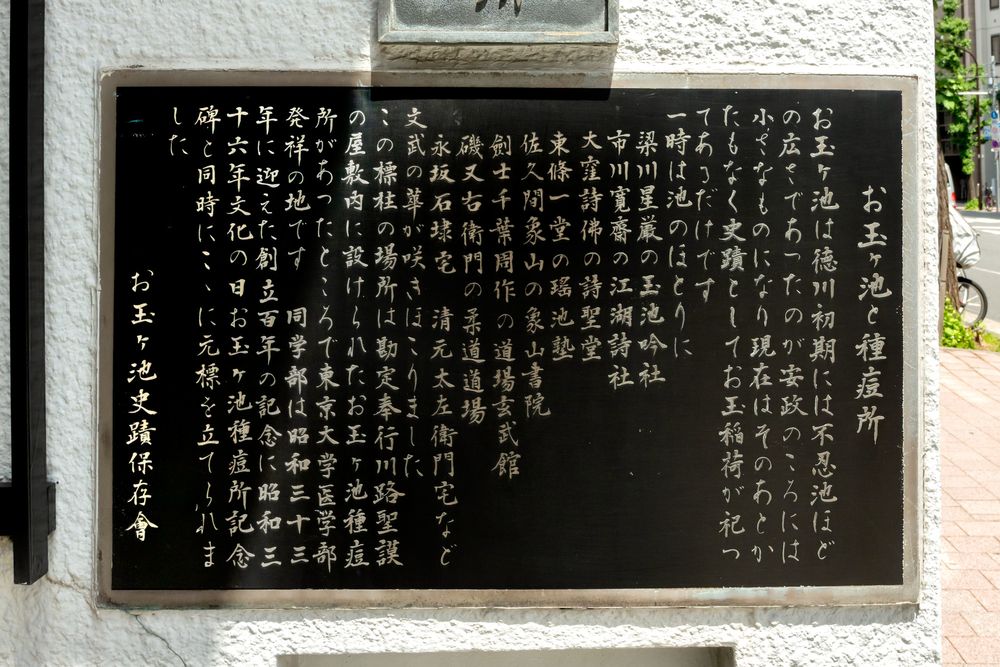 お玉ヶ池と種痘所
お玉ヶ池は徳川初期には不忍池ほど
の広さであったのが安政のころには
小さなものになり現在はそのあとか
たもなく史蹟としてお玉稲荷が祀っ
てあるだけです
一時は池のほとりに
梁川星厳の玉池吟社
市川寛齋の江湖詩社
大窪詩佛の詩聖堂
東條一堂の瑶池塾
佐久間象山の象山書院
劍士千葉周作の道場玄武館
磯又右衛門の柔道道場
永坂石埭宅 清元太左衛門宅など
文武の華が咲きほこりました
この標柱の場所は勘定奉行川路聖謨
の屋敷内に設けられたお玉ヶ池種痘
所があったところで東京大学医学部
発祥の地です 同学部は昭和三十三
年に迎えた創立百年の記念に昭和三
十六年文化の日お玉ヶ池種痘所記念
碑と同時にこゝに元標を立てられま
した
お玉ヶ池史蹟保存會